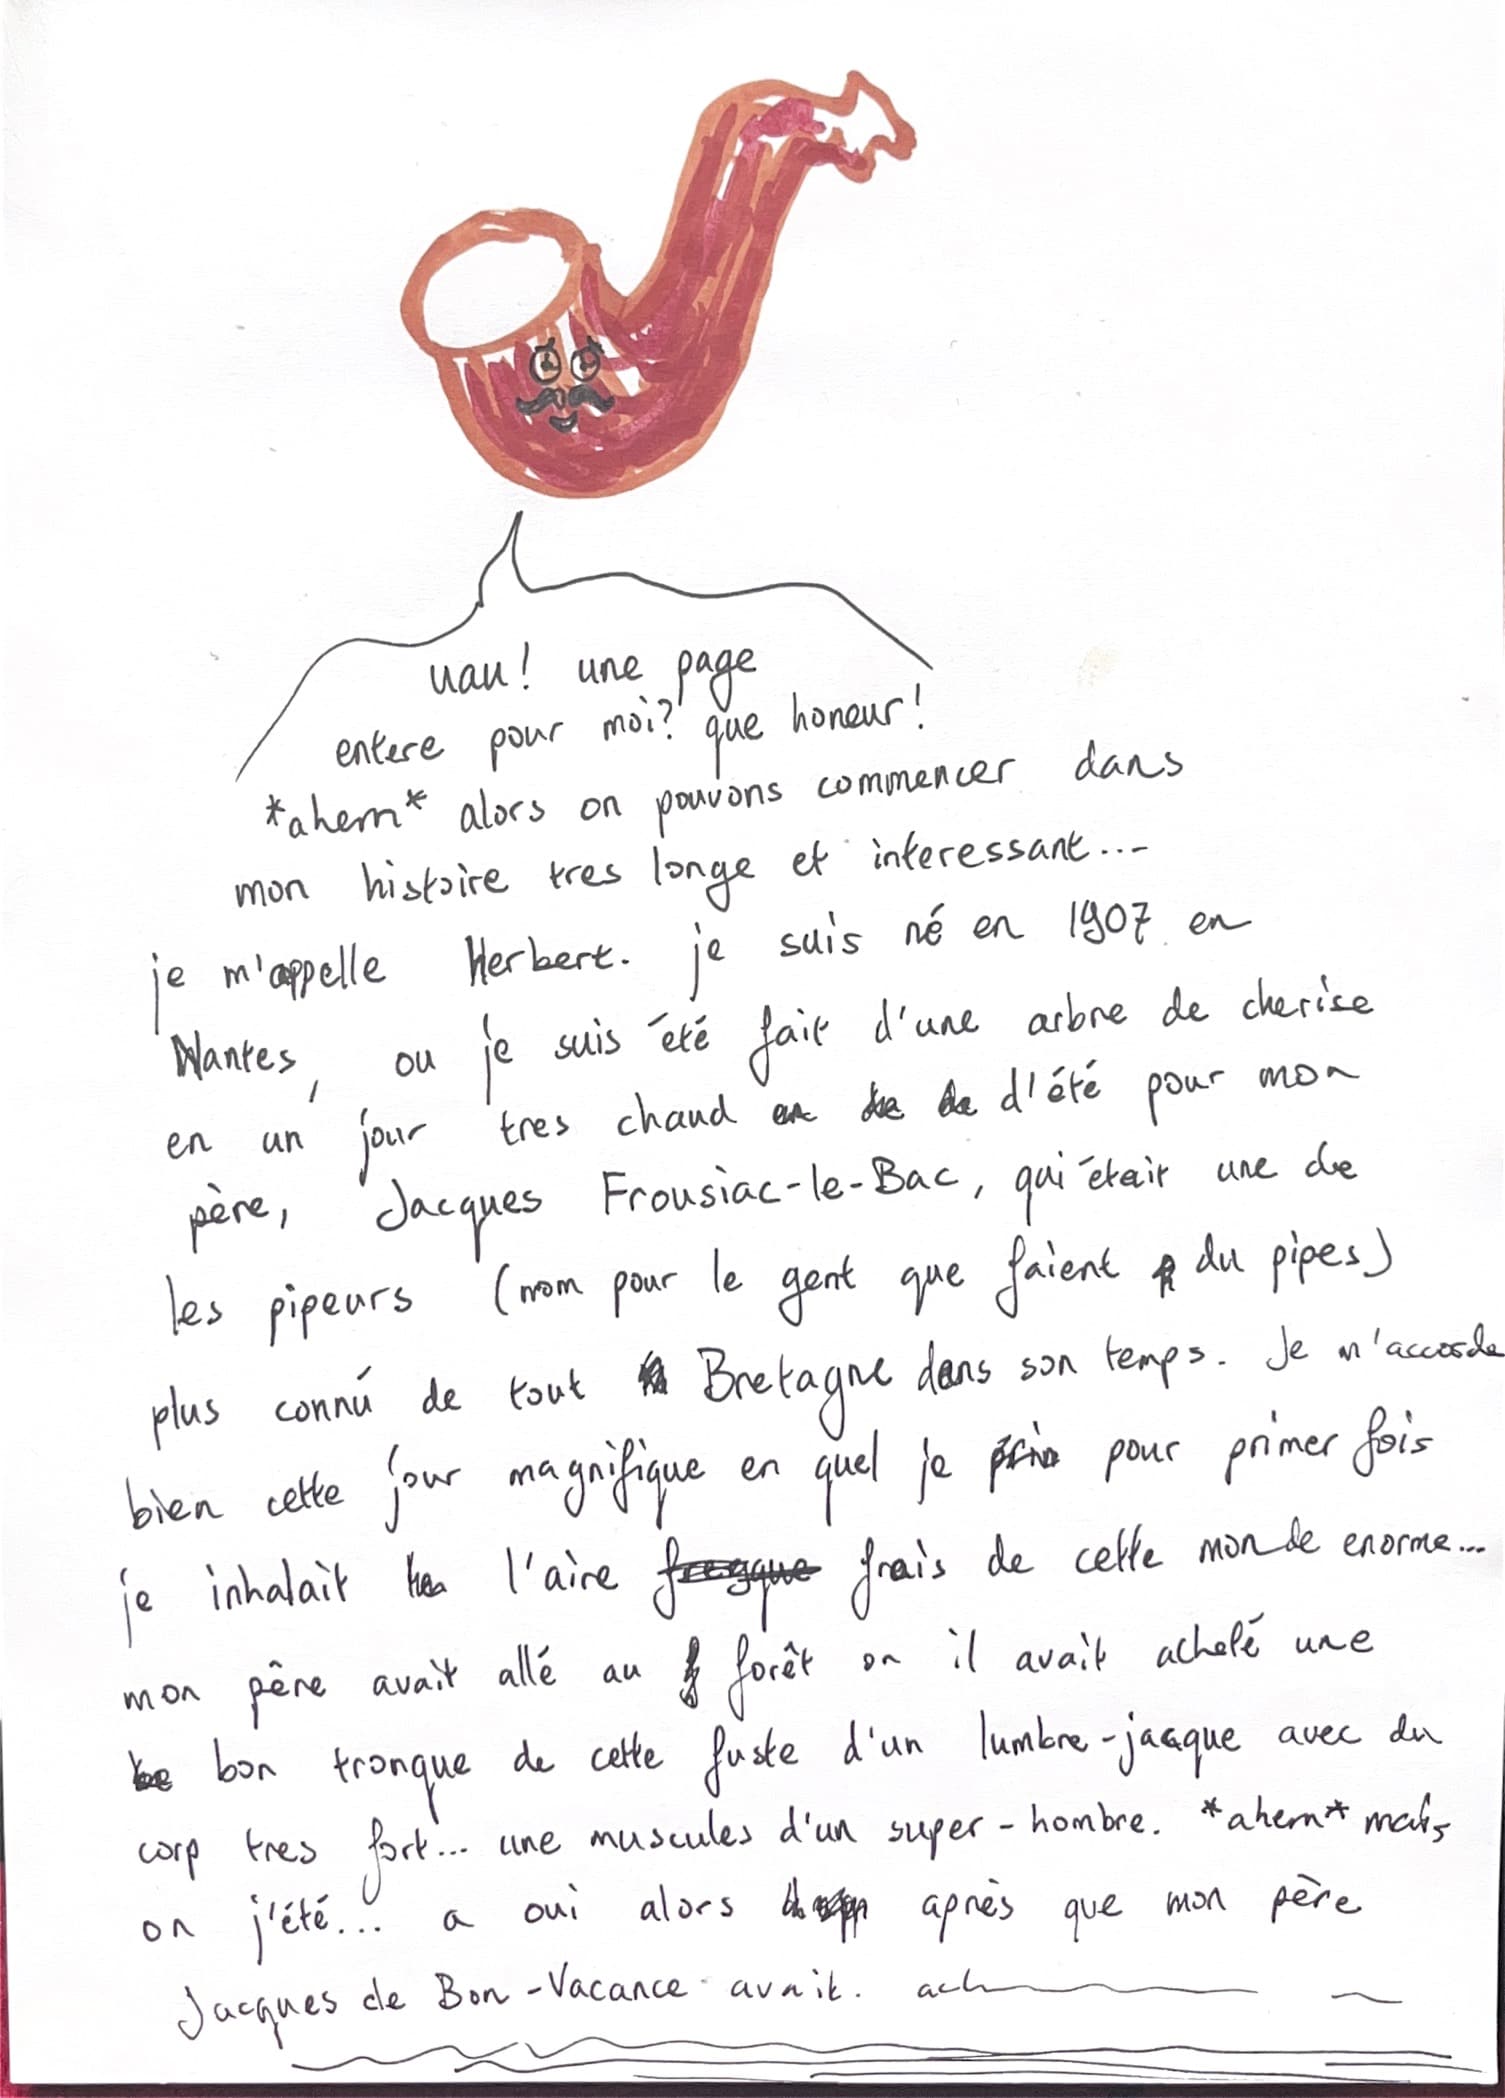 uau! une page
entere pour moi? que honeur!
*ahem* alors on pouvons commencer dans
mon histoire tres longe et interessant...
je m'appelle Herbert. je suis né en 1907 en
Nantes, ou je suis été fait d'une arbre de cherise
en un jour tres chaud d'été pour mon
père, Jacques Frousiac-le-Bac, qui était une de
les pipeurs (nom pour le gent que faient du pipes)
plus connú de tout Bretagne dans son temps. Je m'accorde
bien cette jour magnifique en quel je pour primer fois
je inhalait l'aire frais de cette monde enorme...
mon pêre avait allé au forêt on il avait acheté une
bon tronque de cette fuste d'un lumbre-jacque avec du
corp tres fort... une muscules d'un super-hombre. *ahem* mais
on j'été... a oui alors après que mon père
Jacques de Bon-Vacance avait. ach